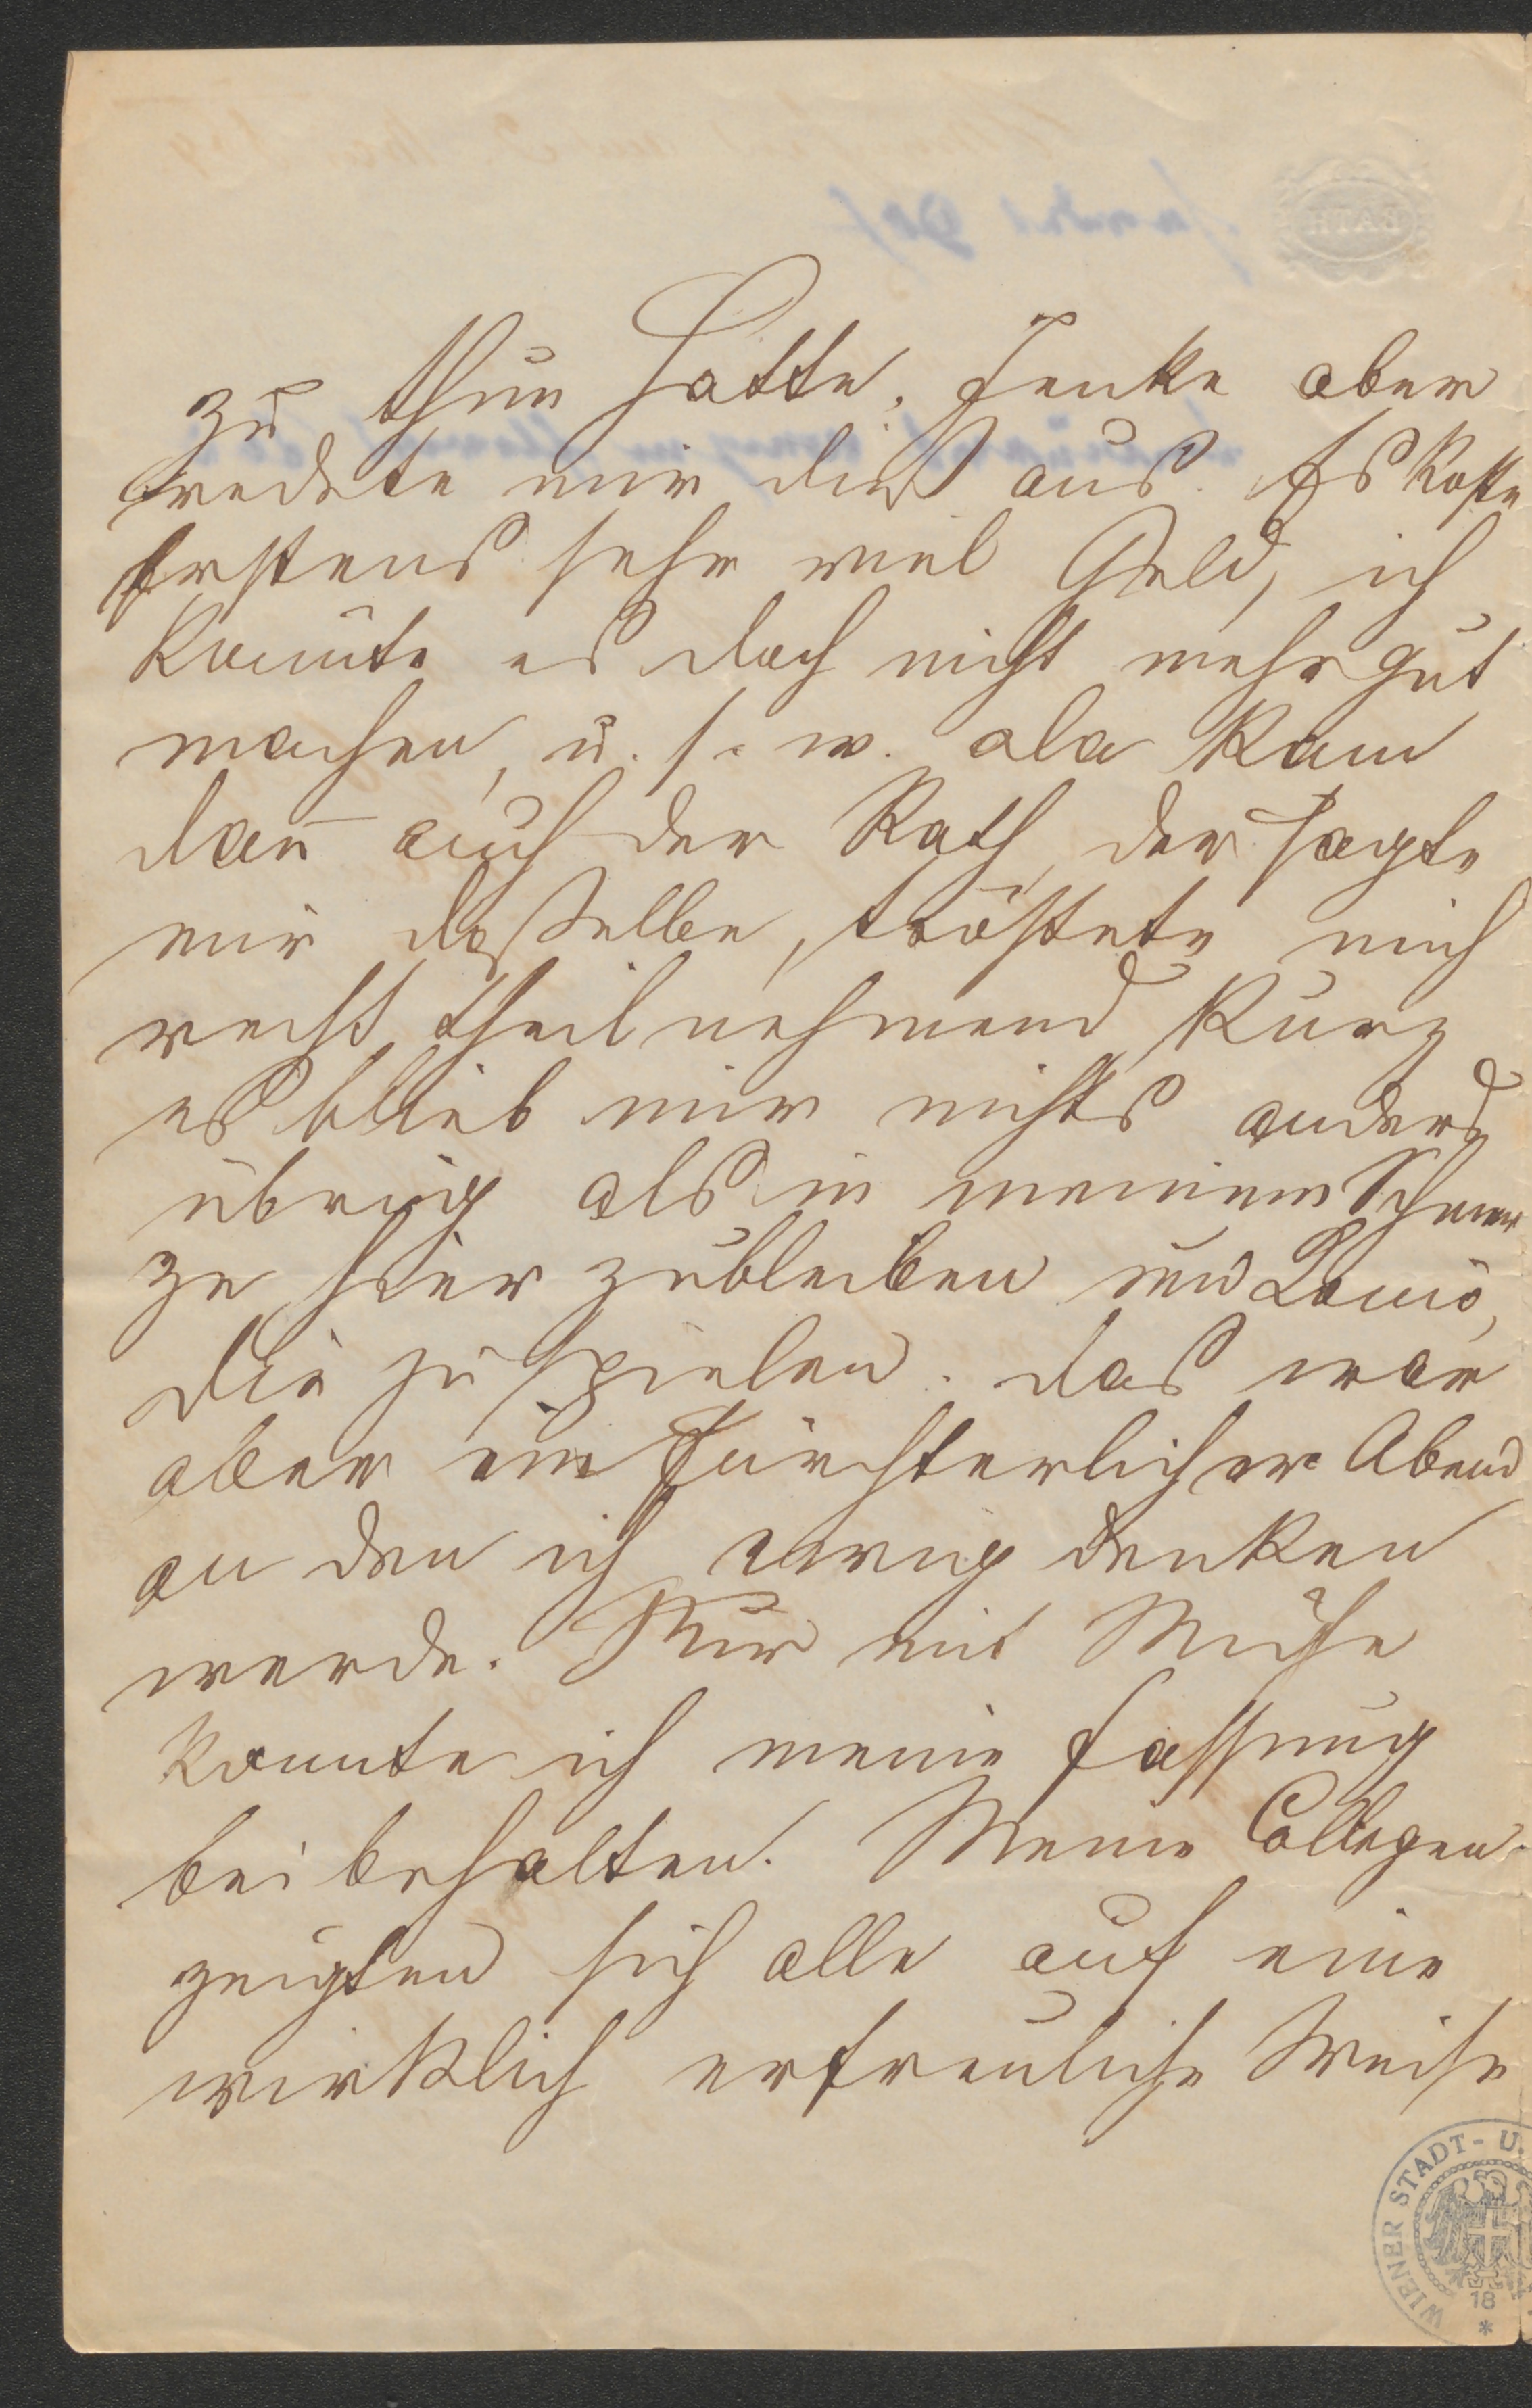 zu thun hatte, Jenke aber
redete mir dieß aus. Es koste
Erstens sehr viel Geld, ich
könnte es doch nicht mehr gut
machen, u. s. w. ala kam
dan̄ auch der Rath, der sagte
mir daßselbe, tröstete mich
recht theilnehmend kurz
es blieb mir nichts anders
übrig als in meinem Schmer
ze hier zubleiben und
die zu spielen. das war
aber ein fürchterlicher Abend
an den ich ewig denken
werde. Nur mit Mühe
konnte ich meine Fassung
beibehalten. Meine Collegen
zeigten sich alle auf eine
wirklich erfreuliche Weise
WIENER STADT- U.
18